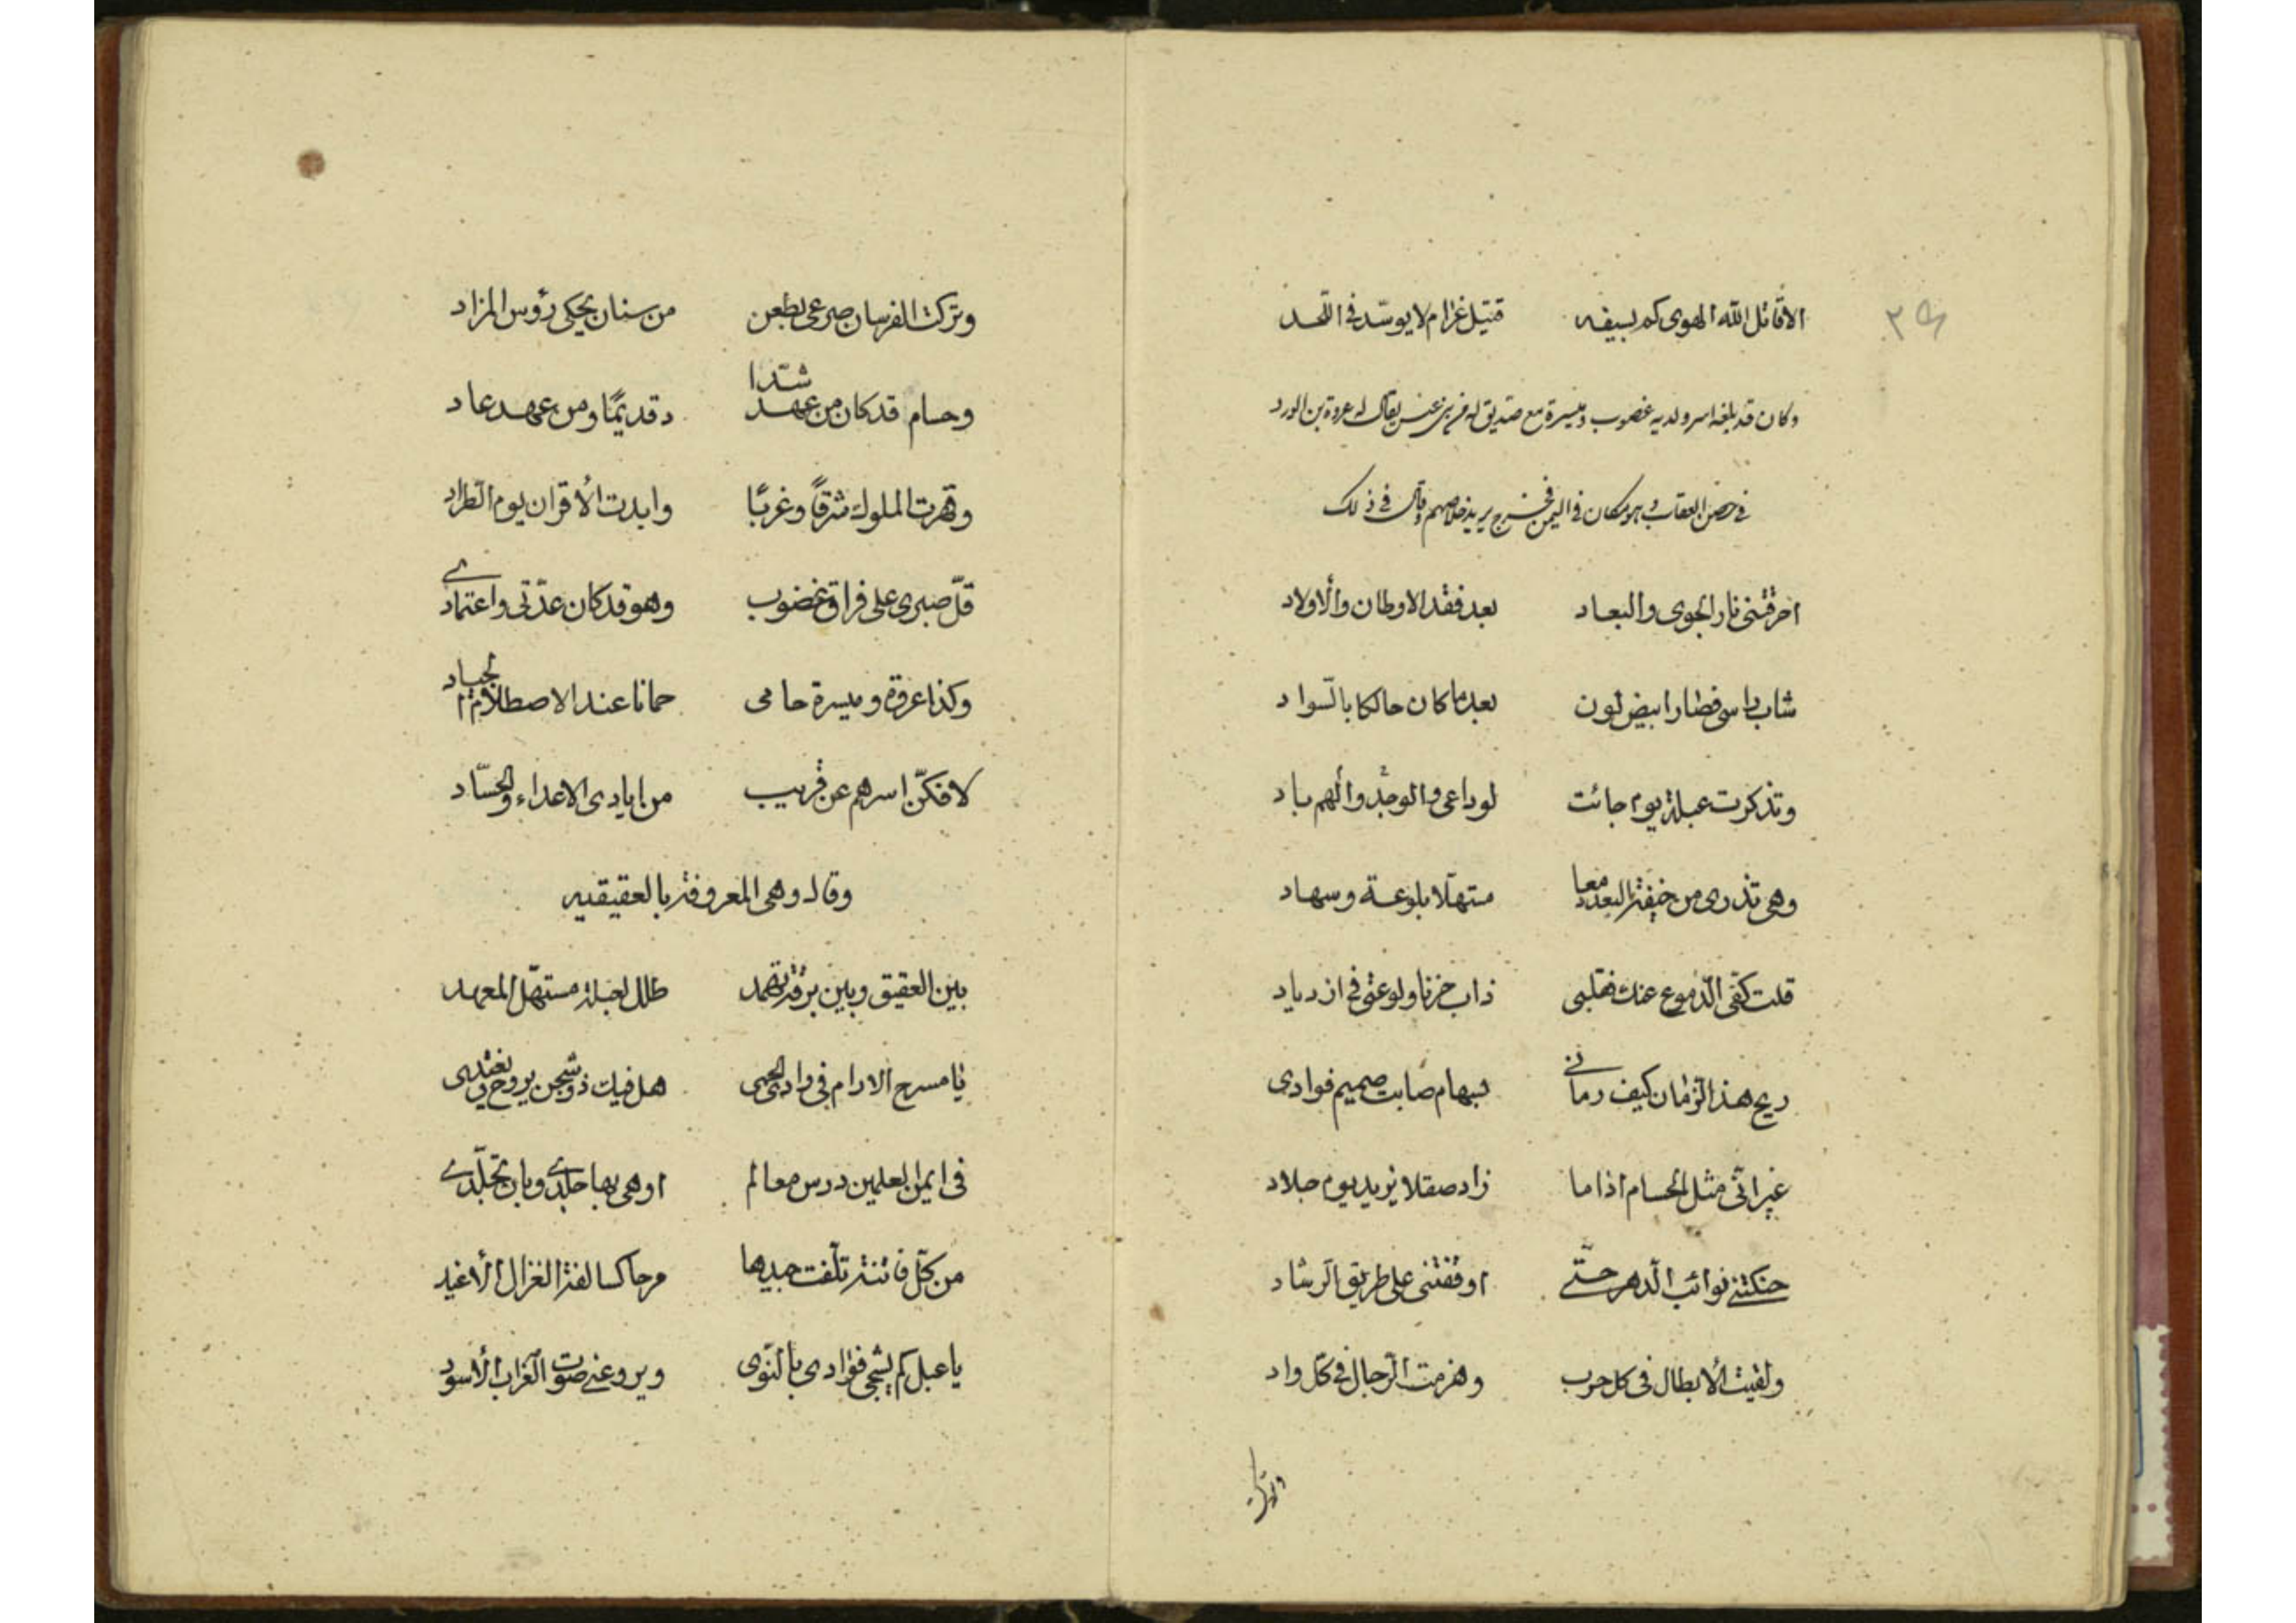 ٣٩
الا قاتل الله الهوى كم بسيفه قتيل غرام لا يوسّد فى اللّحد
وكان قد بلغه اسر ولديه غصوب وميسرة مع صديق له من بنى عبس يقال له عروة بن الورد
فى حصن العقاب وهو مكان فى اليمن فخرج يريد خلاصهم وقال فى ذلك
احرقتنى نار الجوى والبعاد بعد فقد الاوطان والأولاد
شاب راسى فصار ابيض لون بعد ما كان حالكا بالسّواد
وتذكرت عبلة يوم جائت لوداعى والوجد والهم باد
وهى تذرى من خيفة البعد دمعا مستهلّا بلوعة وسهاد
قلت كفّى الدّموع عنك فقلبى ذاب حزنا ولوعتى فى ازدياد
ريح هذا الزمان كيف رمانى بسهام صابت صميم فوادى
غير انّى مثل الحسام اذا ما زاد صقلا يزيد يوم جلاد
حنكتنى نوائب الدّهر حتّى اوقفتنى على طريق الرّشاد
ولقيت الأبطال فى كل حرب وهزمت الرّجال فى كل واد
وتركت
وتركت الفرسان صرعى بطعن من سنان يحكى رؤس المزاد
وحسام قد كان من عهد شدّا د قديمًا ومن عهد عاد
وقهرت الملوك شرقًا وغربًا وابدت الأقران يوم الطّراد
قلّ صبرى على فراق غضوب وهو قد كان عدّتى واعتمادى
وكذا عروة وميسرة حامى حمانا عند الاصطلام الجياد
لافكنّ اسرهم عن قريب من ايادى الاعداء والحسّاد
وقال وهى المعروفة بالعقيقيه
بين العقيق وبين برقة ثهمد طلل لعبلة مستهلّ المعهد
يا مسرح الارام فى وادى الحمى هل فيك ذو شجن يروح ويغتدى
فى ايمن العلمين درس معالم اوهى بها جلدى وبان تجلّدى
من كلّ فاتنة تلّفت جيدها مرحا كسالفة الغزال الأغيد
يا عبل كم يشجى فؤادى بالنّوى ويروعنى صوت الغراب الأسود